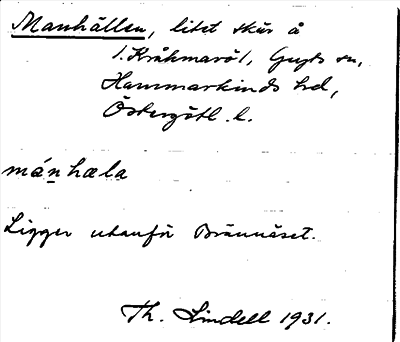 Manhällen, litet skär å
l. Kråkmarö 1, Gryts sn,
Hammarkinds hd,
Östergötl. l.
mánhæla
Ligger utanför Brännäset.
Th. Lindell 1931.